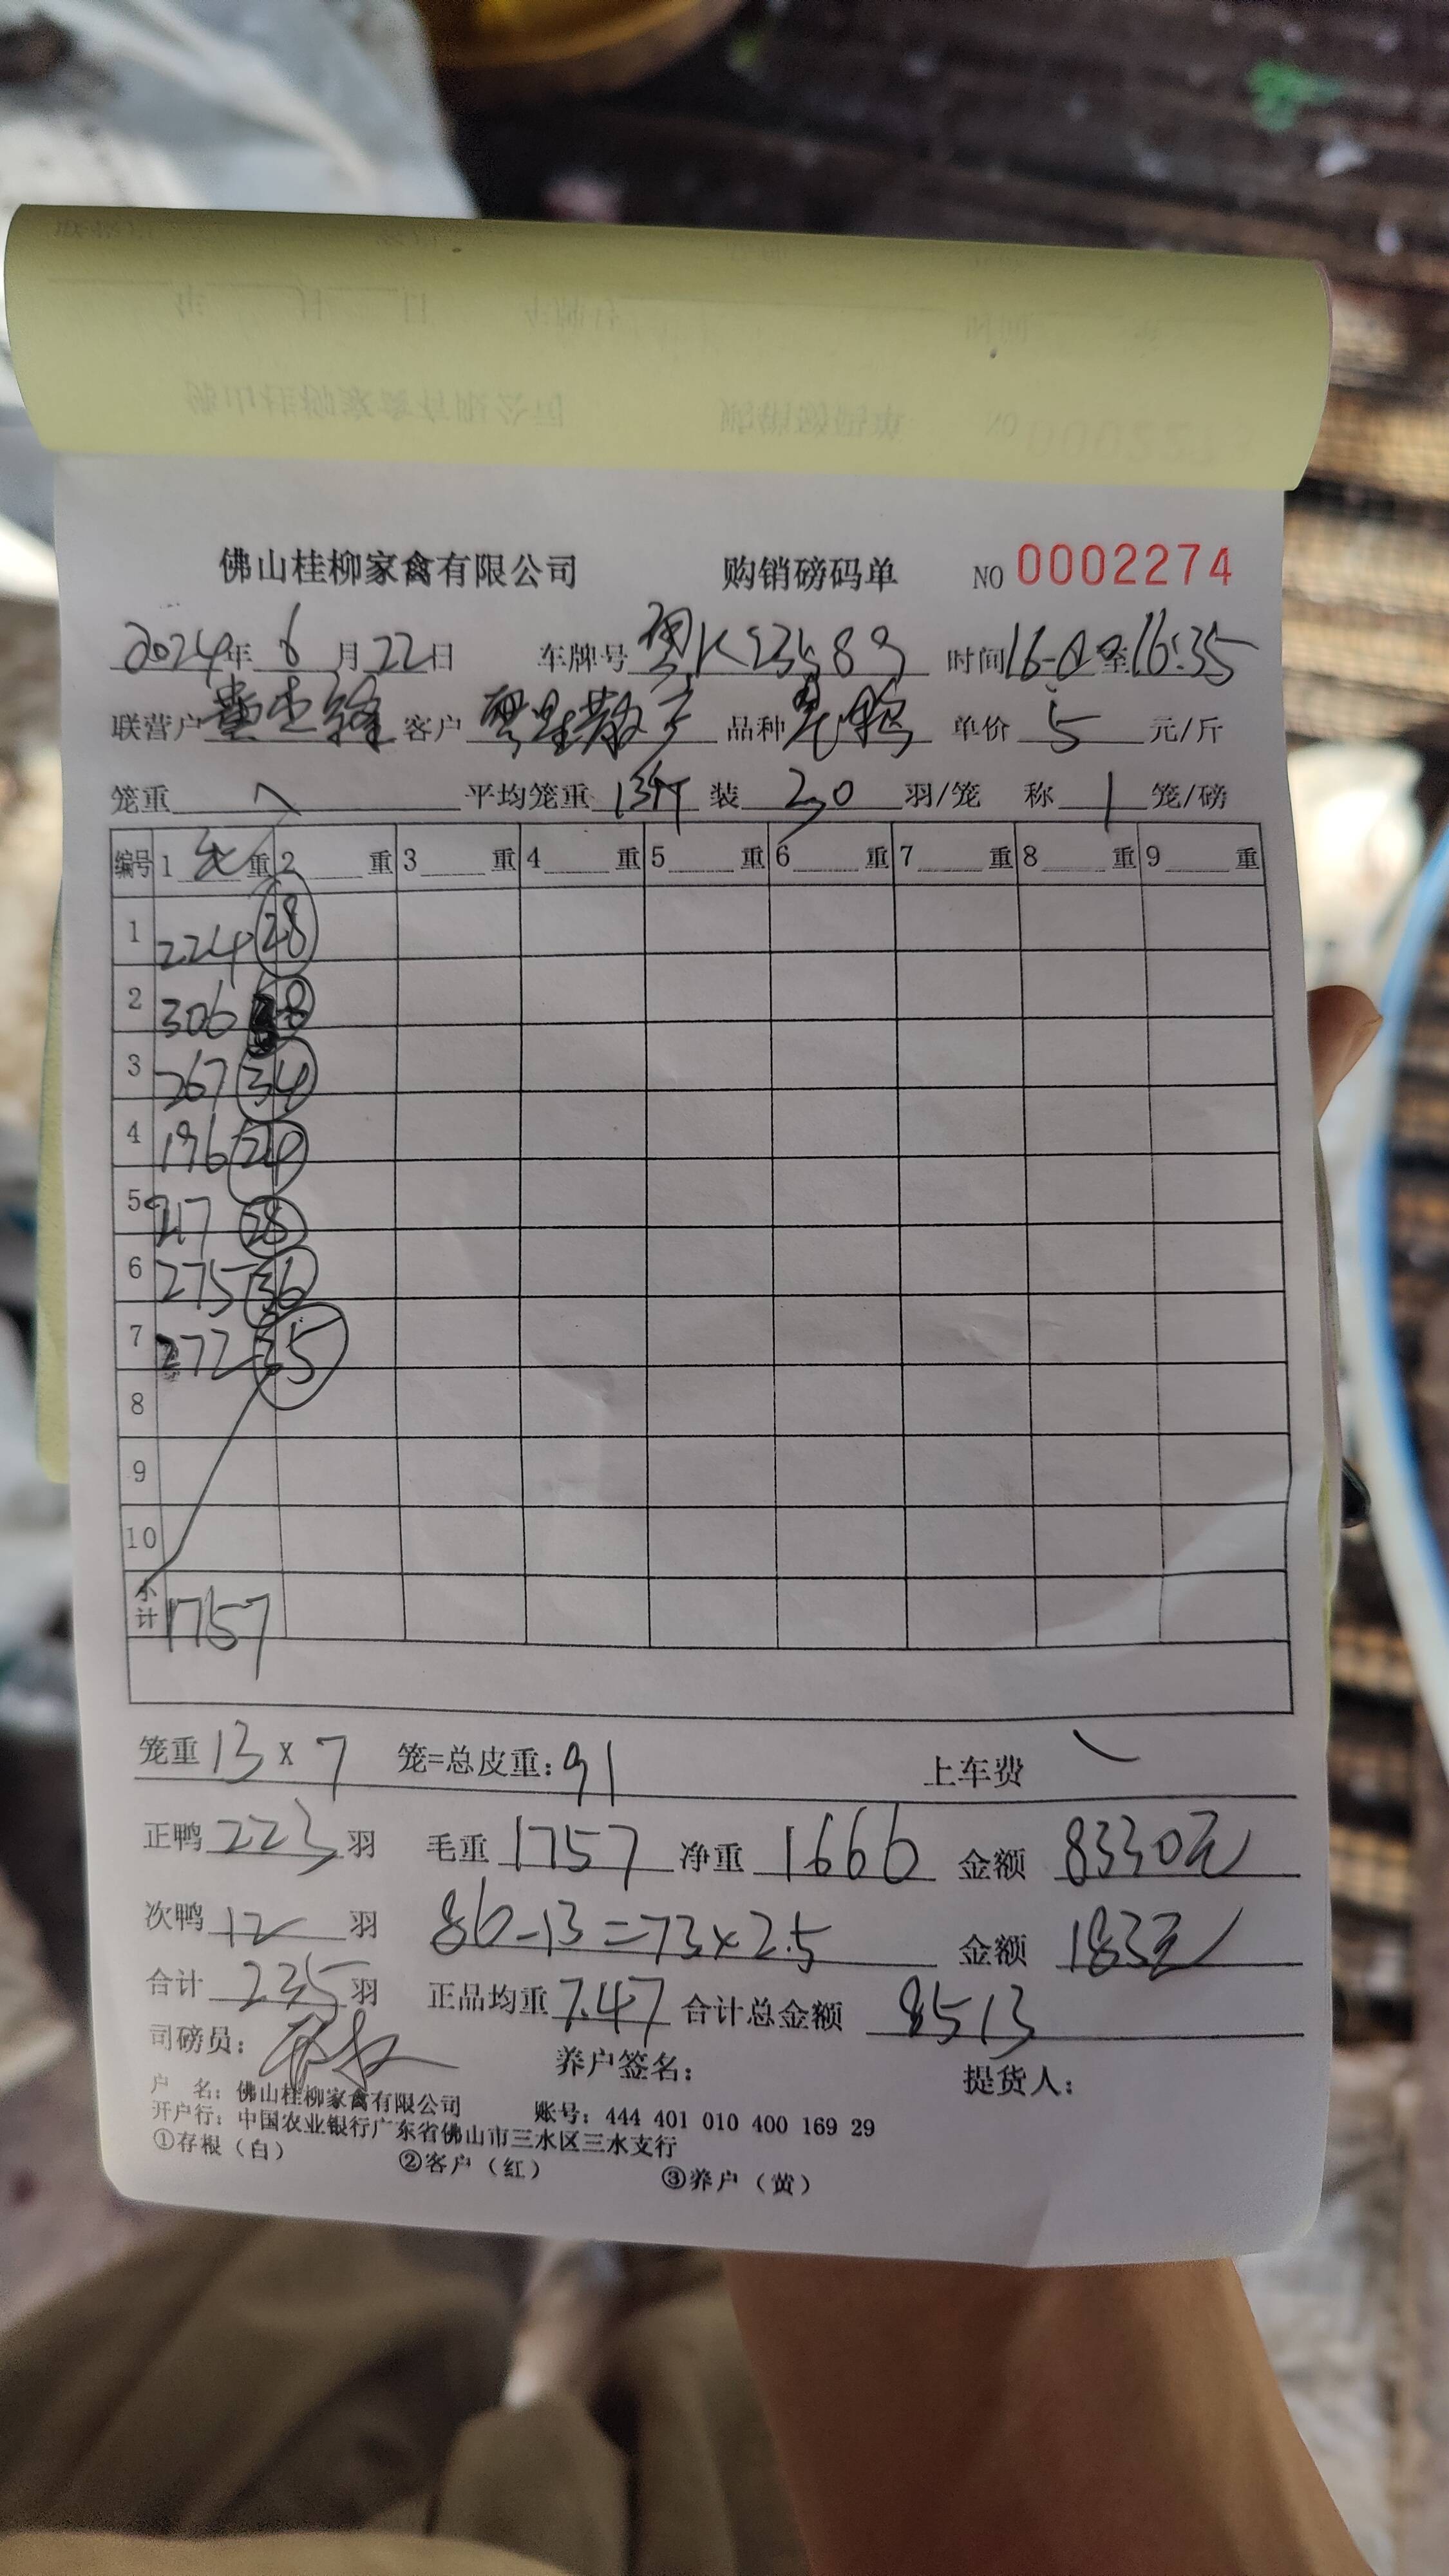 佛山桂柳家禽有限公司 购销磅码单 NO 0002274
2024年 6 月 22日 车牌号 粤K23589 时间 16:00 至 16:35
联营户 客户 散户 品种 单价 5 元/斤
笼重 平均笼重 13斤 装 30 羽/笼 称 1 笼/磅
编号 1 重 2 重 3 重 4 重 5 重 6 重 7 重 8 重 9 重
1 224 28
2 306 38
3 267 34
4 196 24
5 217 28
6 275 36
7 272 35
8
9
10
小计 1757
笼重 13 x 7 笼=总皮重: 91 上车费
正鸭 223 羽 毛重 1757 净重 1666 金额 8330元
次鸭 12 羽 86-13=73x2.5 金额 183元
合计 235 羽 正品均重 7.47 合计总金额 8513
司磅员: 养户签名: 提货人:
户 名: 佛山桂柳家禽有限公司 账号: 444 401 010 400 169 29
开户行: 中国农业银行广东省佛山市三水区三水支行
①存根(白) ②客户(红) ③养户(黄)